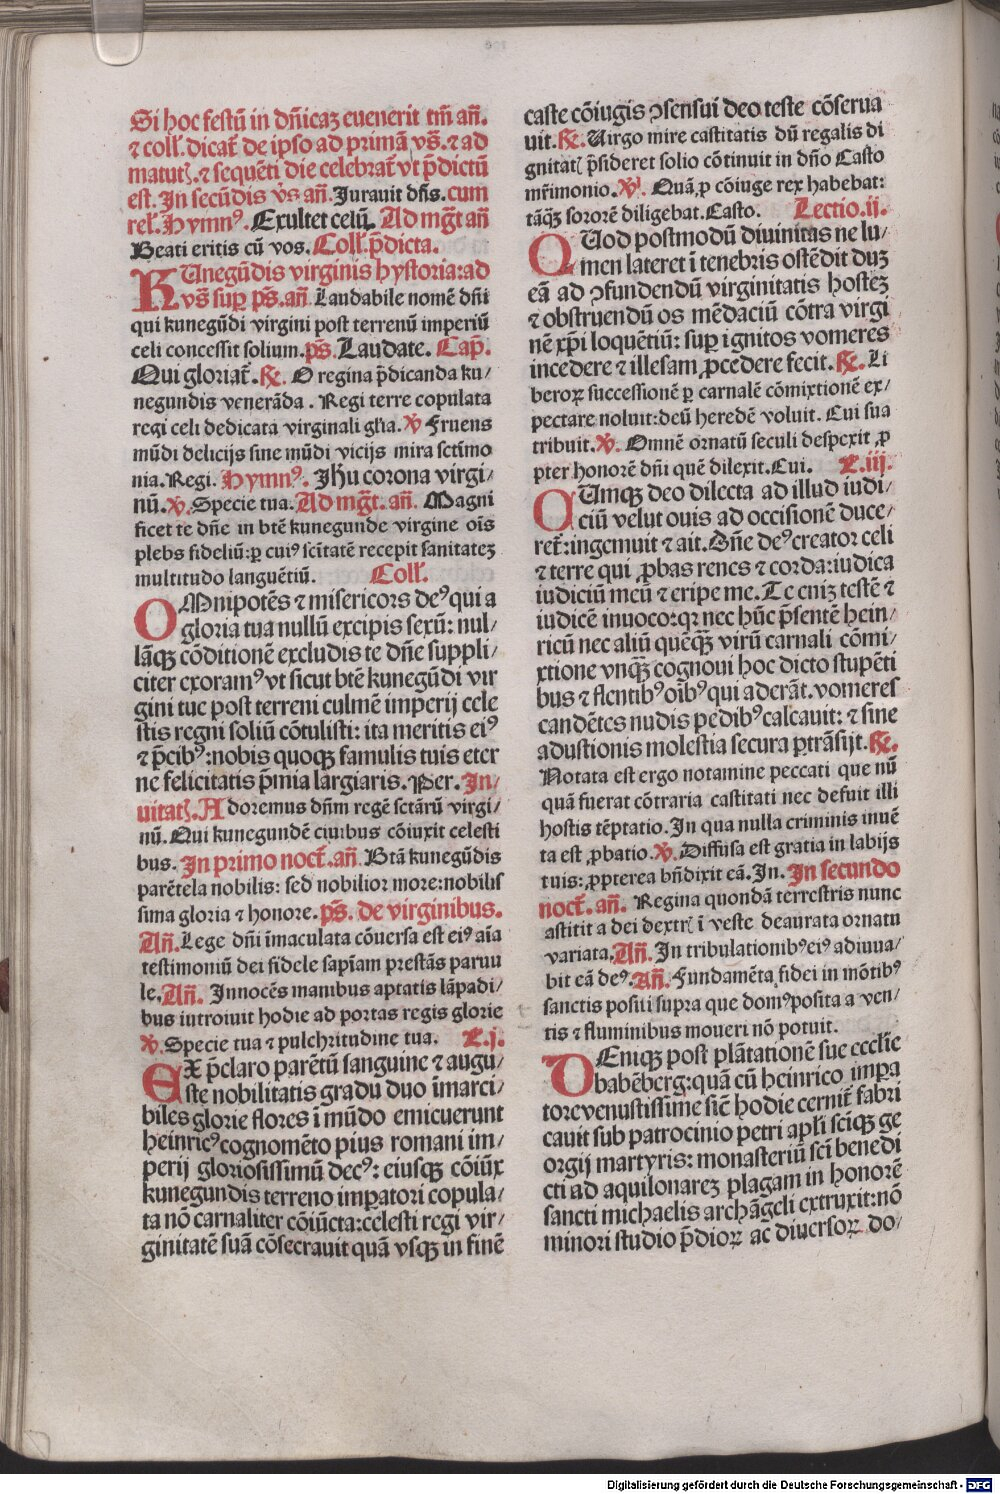 Si hoc festū in dñicaꝫ euenerit tm̄ añ.
⁊ coll̃. dicat̃ de ipso ad primā vs̃. ⁊ ad
matut̃. ⁊ sequēti die celebrat̃ vt p̄dictū
est. In secūdis v̄s añ. Jurauit dñs. cum
rel̃. Hymnꝰ. Exultet celū. Ad mg̃t añ
Beati eritis cū vos. Coll̃. p̄dicta.
KUnegūdis virginis hystoria: ad
vs̃ suꝑ ps̃. añ. Laudabile nomē dñi
qui kunegūdi virgini post terrenū imperiū
celi concessit solium. ps̃. Laudate. Cap̃.
Qui gloriat̃. ℟. O regina p̄dicanda ku/
negundis venerāda. Regi terre copulata
regi celi dedicata virginali gl̃ia. ℣ Fruens
mūdi delicijs sine mūdi vicijs mira sctimo
nia. Regi. Hymnꝰ. Jhū corona virgi/
nū. ℣. Specie tua. Ad mg̃t. añ. Magni
ficet te dñe in btē kunegunde virgine oīs
plebs fideliū: ꝑ cuiꝰ sc̄itatē recepit sanitateꝫ
multitudo languētiū. Coll̃.
OMnipotēs ⁊ misericors deꝰ qui a
gloria tua nullū excipis sexū: nul/
lāqꝫ cōditionē excludis te dñe suppli/
citer exoramꝰ vt sicut btē kunegūdi vir
gini tue post terreni culmē imperij cele
stis regni soliū cōtulisti: ita meritis eiꝰ
⁊ p̄cibꝰ: nobis quoqꝫ famulis tuis eter
ne felicitatis p̄mia largiaris. Per. In/
uitat̃. Adoremus dñm regē sctārū virgi/
nū. Qui kunegundē ciuibus cōiuxit celesti
bus. In primo noct̃. añ. Btā kunegūdis
parētela nobilis: sed nobilior more: nobilis
sima gloria ⁊ honore. ps̃. de virginibus.
Añ. Lege dñi īmaculata cōuersa est eiꝰ aīa
testimoniū dei fidele sapīam prestās paruu
le. Añ. Innocēs manibus aptatis lāpadi/
bus introiuit hodie ad portas regis glorie
℣. Specie tua ⁊ pulchritudine tua. L.j.
EX p̄claro parētū sanguine ⁊ augu/
ste nobilitatis gradu duo īmarci/
biles glorie flores ī mūdo emicuerunt
heinricꝰ cognomēto pius romani im/
perij gloriosissimū decꝰ: eiusqꝫ cōiūx
kunegundis terreno imꝑatori copula/
ta nō carnaliter cōiūcta: celesti regi vir/
ginitatē suā cōsecrauit quā vsqꝫ in finē
caste cōiugis ꝯsensui deo teste cōserua
uit. ℟. Uirgo mire castitatis dū regalis di
gnitat̃ p̄sideret solio cōtinuit in dño Casto
mr̃imonio. ℣. Quā ꝓ cōiuge rex habebat:
tāqꝫ sororē diligebat. Casto. Lectio.ij.
QUod postmodū diuinitas ne lu/
men lateret ī tenebris ostēdit duꝫ
eā ad ꝯfundendū virginitatis hosteꝫ
⁊ obstruendū os mēdaciū cōtra virgi
nē xp̄i loquētiū: suꝑ ignitos vomeres
incedere ⁊ illesam ꝓcedere fecit. ℟. Li
beroꝝ successionē ꝑ carnalē cōmixtionē ex/
pectare noluit: deū heredē voluit. Cui sua
tribuit. ℣. Omnē ornatū seculi despexit ꝓ
pter honorē dñi quē dilexit. Cui. L.iij.
QUmqꝫ deo dilecta ad illud iudi/
ciū velut ouis ad occisionē duce/
ret̃: ingemuit ⁊ ait. Dñe deꝰ creator celi
⁊ terre qui ꝓbas renes ⁊ corda: iudica
iudiciū meū ⁊ eripe me. Te eniꝫ testē ⁊
iudicē inuoco: qꝛ nec hūc p̄sentē hein/
ricū nec aliū quēqꝫ virū carnali cōmi/
xtione vnqꝫ cognoui hoc dicto stupēti
bus ⁊ flentibꝰ oībꝰ qui aderāt. vomeres
candētes nudis pedibꝰ calcauit: ⁊ sine
adustionis molestia secura ꝑtrāsijt. ℟.
Notata est ergo notamine peccati que nū
quā fuerat cōtraria castitati nec defuit illi
hostis tēptatio. In qua nulla criminis inuē
ta est ꝓbatio. ℣. Diffusa est gratia in labijs
tuis: ꝓpterea bñdixit eā. In. In secundo
noct̃. añ. Regina quondā terrestris nunc
astitit a dei dextr̃ ī veste deaurata ornatu
variata. Añ. In tribulationibꝰ eiꝰ adiuua/
bit eā deꝰ. Añ. Fundamēta fidei in mōtibꝰ
sanctis positi supra que domꝰ posita a ven/
tis ⁊ fluminibus moueri nō potuit.
DEniqꝫ post plātationē sue eccl̃ie
babēberg: quā cū heinrico imꝑa
tore venustissime sic̄ hodie cernit̃ fabri
cauit sub patrocinio petri apl̃i sc̄iqꝫ ge
orgij martyris: monasteriū sc̄i benedi
cti ad aquilonareꝫ plagam in honorē
sancti michaelis archāgeli extruxit: nō
minori studio p̄dioꝝ ac diuersoꝝ do/
Digitalisierung gefördert durch die Deutsche Forschungsgemeinschaft - DFG